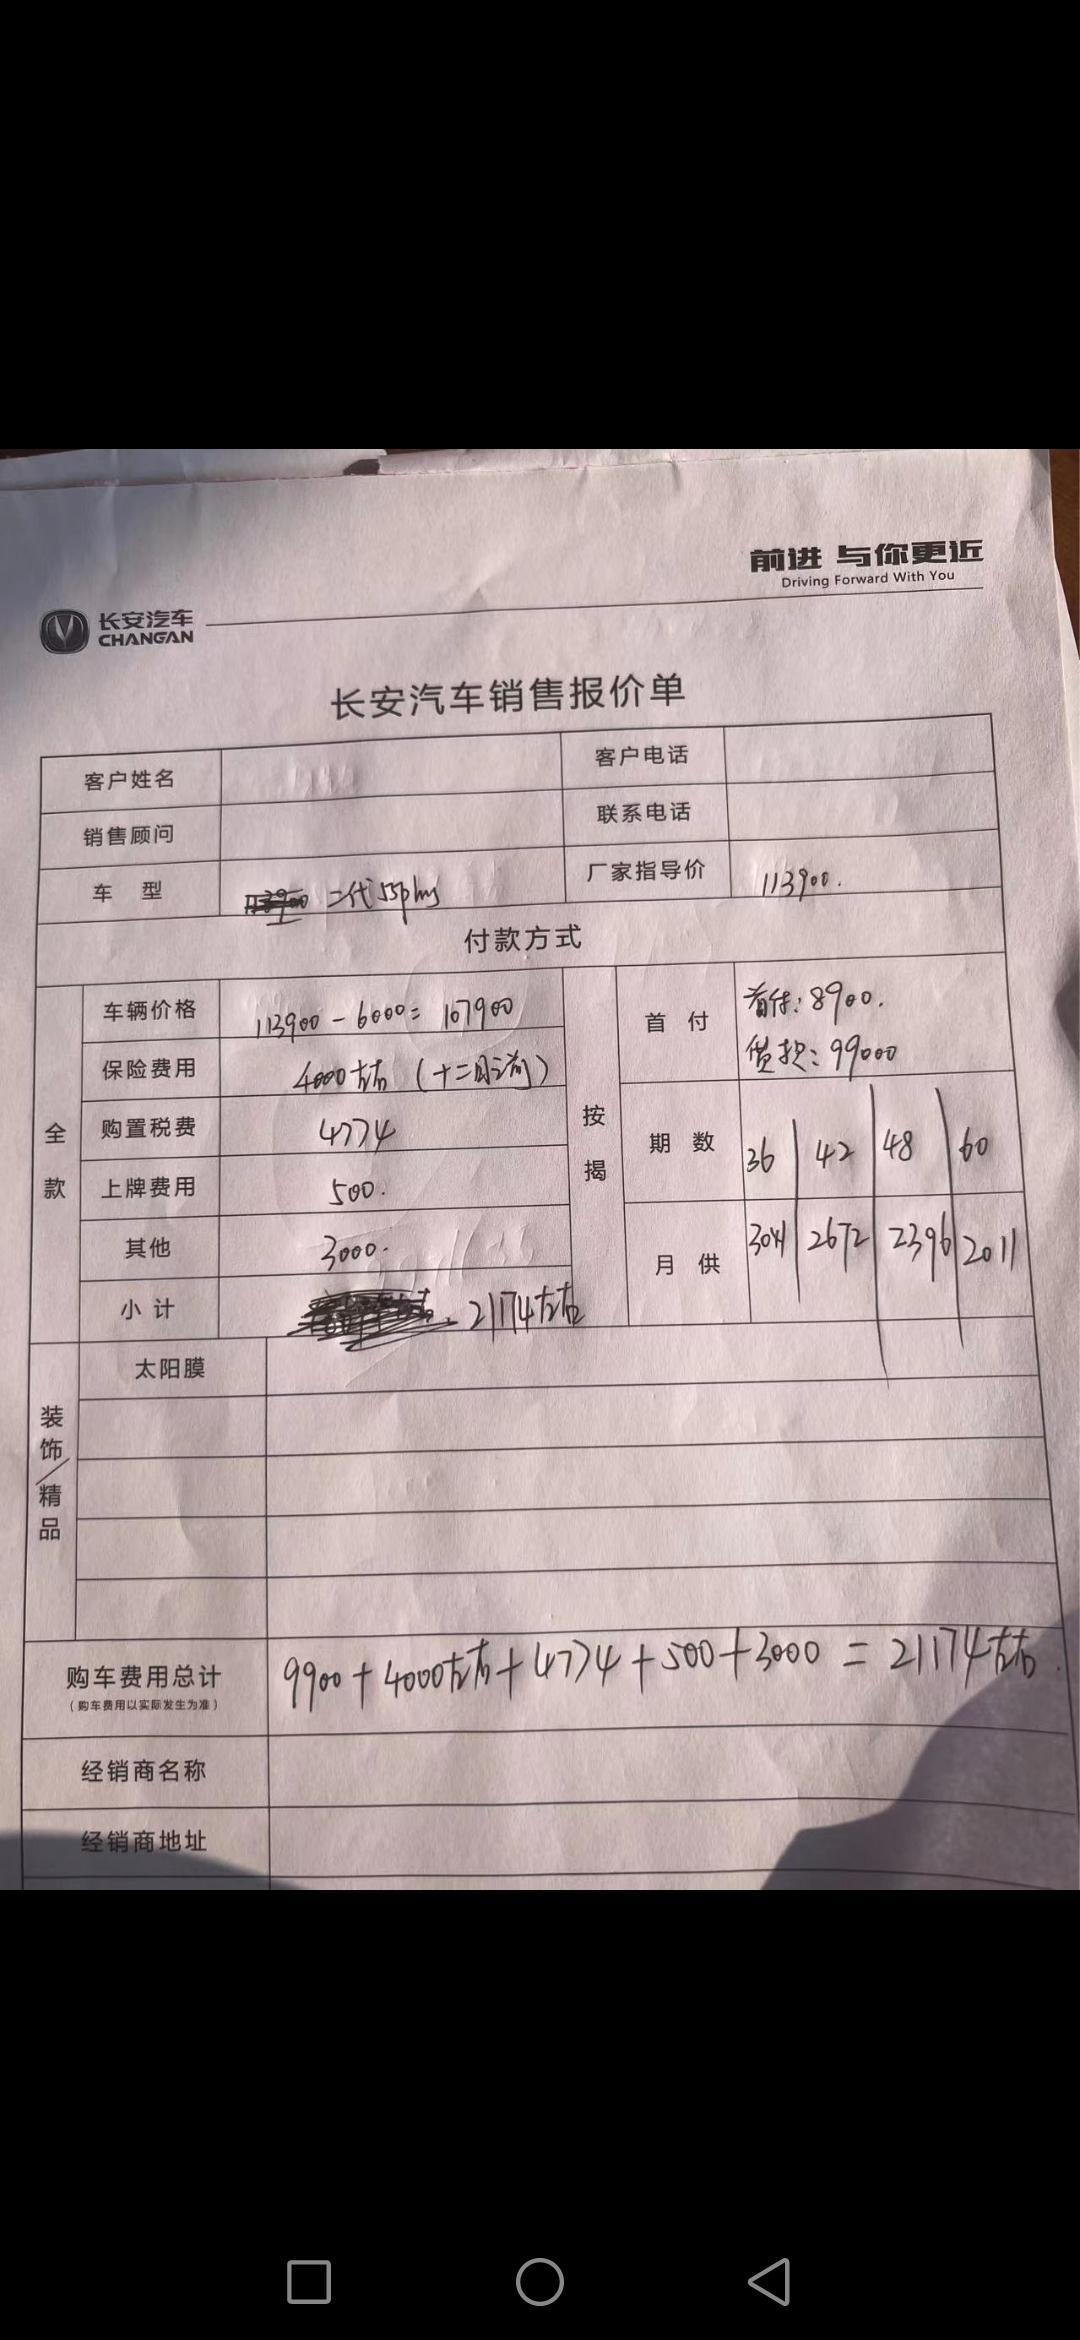 前进 与你更近
Driving Forward With You
长安汽车
CHANGAN
长安汽车销售报价单
客户姓名
客户电话
销售顾问
联系电话
车 型 二代55plus
厂家指导价 113900.
付款方式
全款
车辆价格 113900-6000=107900
保险费用 4000左右(十二月之前)
购置税费 4774
上牌费用 500.
其他 3000.
小计 21174左右
按揭
首付 首付:8900.
贷款:99000
期数 36 42 48 60
月供 3041 2672 2396 2011
装饰/精品
太阳膜
购车费用总计 9900+4000左右+4774+500+3000=21174左右.
(购车费用以实际发生为准)
经销商名称
经销商地址